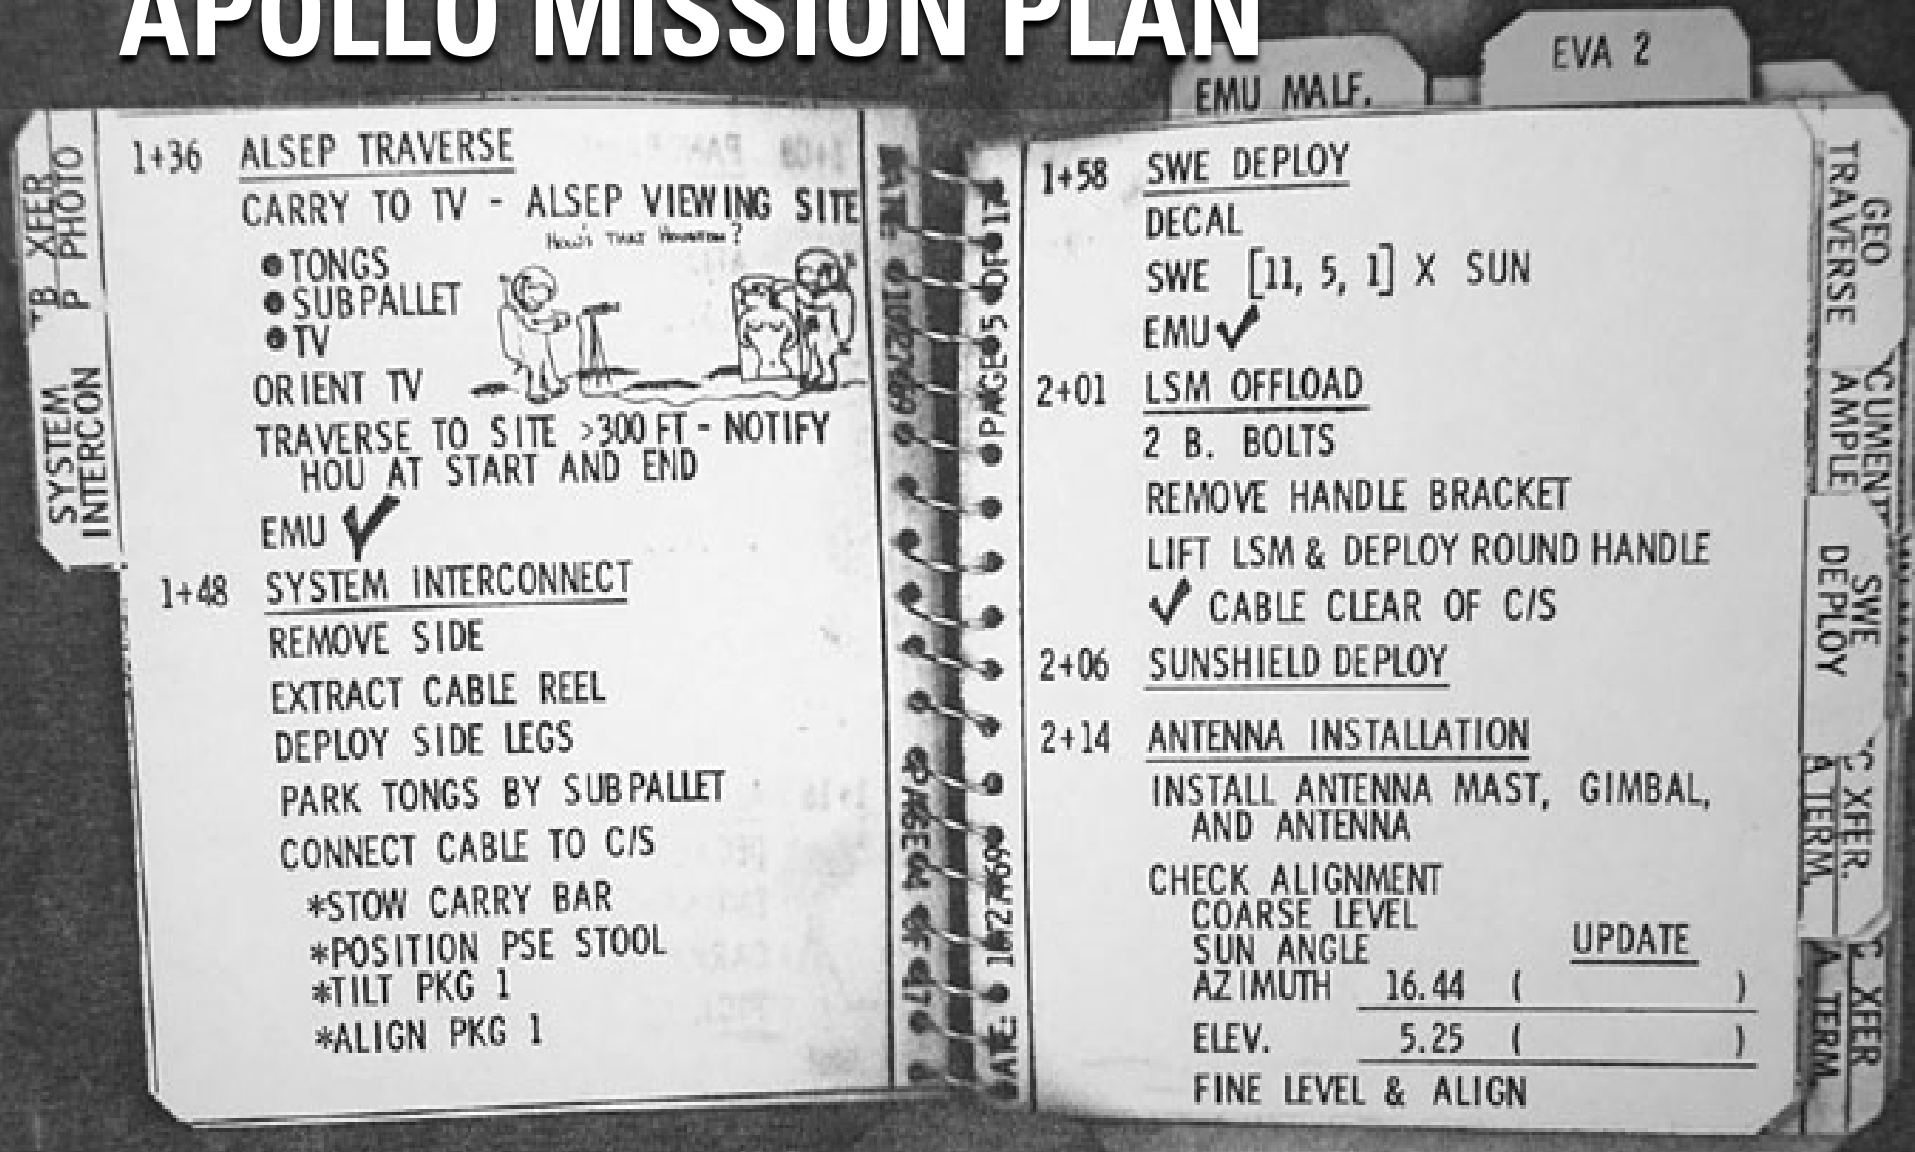 APOLLO MISSION PLAN
EMU MALF.
EVA 2
1+36 ALSEP TRAVERSE
CARRY TO TV - ALSEP VIEWING SITE
HOW'S THAT HOUSTON?
● TONGS
● SUBPALLET
● TV
ORIENT TV
TRAVERSE TO SITE >300 FT - NOTIFY
HOU AT START AND END
EMU ✓
1+48 SYSTEM INTERCONNECT
REMOVE SIDE
EXTRACT CABLE REEL
DEPLOY SIDE LEGS
PARK TONGS BY SUBPALLET
CONNECT CABLE TO C/S
*STOW CARRY BAR
*POSITION PSE STOOL
*TILT PKG 1
*ALIGN PKG 1
XFER
PHOTO
SYSTEM
INTERCON
1+58 SWE DEPLOY
DECAL
SWE [11, 5, 1] X SUN
EMU ✓
2+01 LSM OFFLOAD
2 B. BOLTS
REMOVE HANDLE BRACKET
LIFT LSM & DEPLOY ROUND HANDLE
✓ CABLE CLEAR OF C/S
2+06 SUNSHIELD DEPLOY
2+14 ANTENNA INSTALLATION
INSTALL ANTENNA MAST, GIMBAL,
AND ANTENNA
CHECK ALIGNMENT
COARSE LEVEL
SUN ANGLE UPDATE
AZIMUTH 16.44 ( )
ELEV. 5.25 ( )
FINE LEVEL & ALIGN
GEO
TRAVERSE
CUMENT
AMPLE
SWE
DEPLOY
C XFER.
A TERM.
C XFER
A TERM